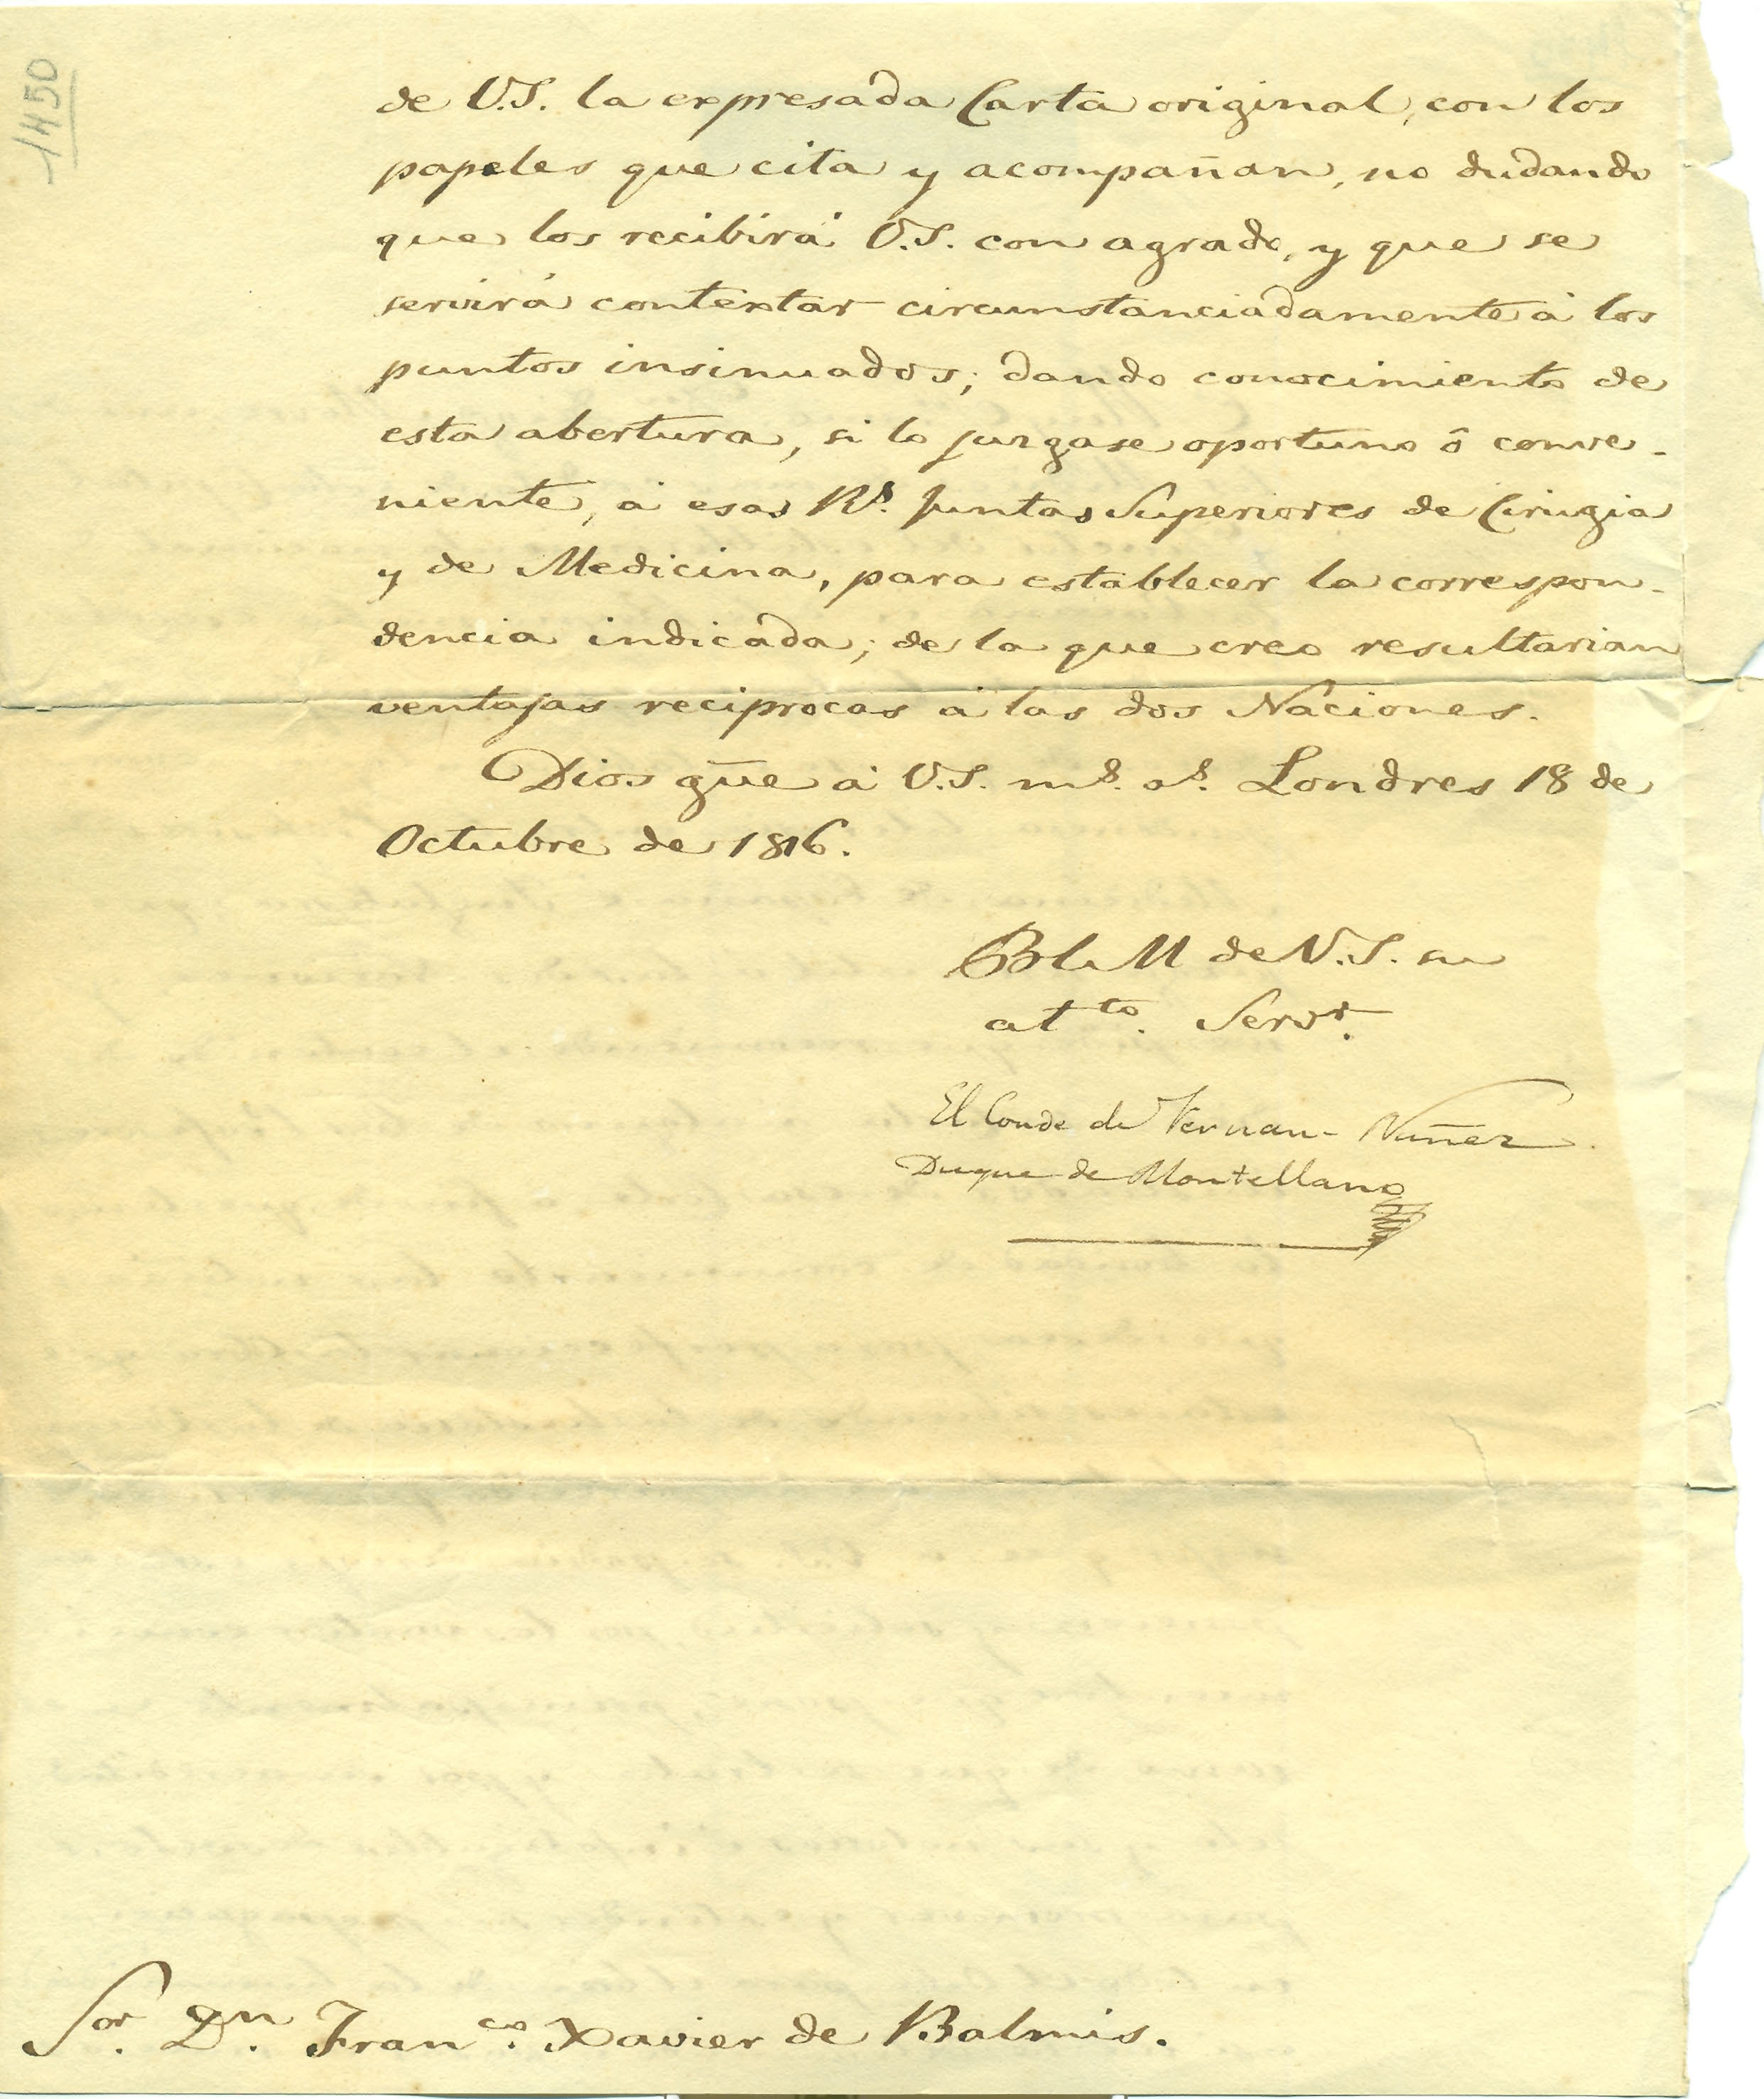 1450
de V.S. la expresada Carta original, con los
papeles que cita y acompañan, no dudando
que los recibirá V.S. con agrado, y que se
servirá contextar circunstanciadamente á los
puntos insinuados; dando conocimiento de
esta abertura, si lo juzgase oportuno ô conve-
niente, á esas Rs. Juntas Superiores de Cirugia
y de Medicina, para establecer la correspon-
dencia indicada; de la que creo resultarian
ventajas reciprocas á las dos Naciones.
Dios gūe á V.S. ms. as. Londres 18 de
Octubre de 1816.
BLM de V.S. su
atto. Servr.
El Conde de Fernan-Nuñez
Duque de Montellano
Sor. Dn. Franco. Xavier de Balmis.